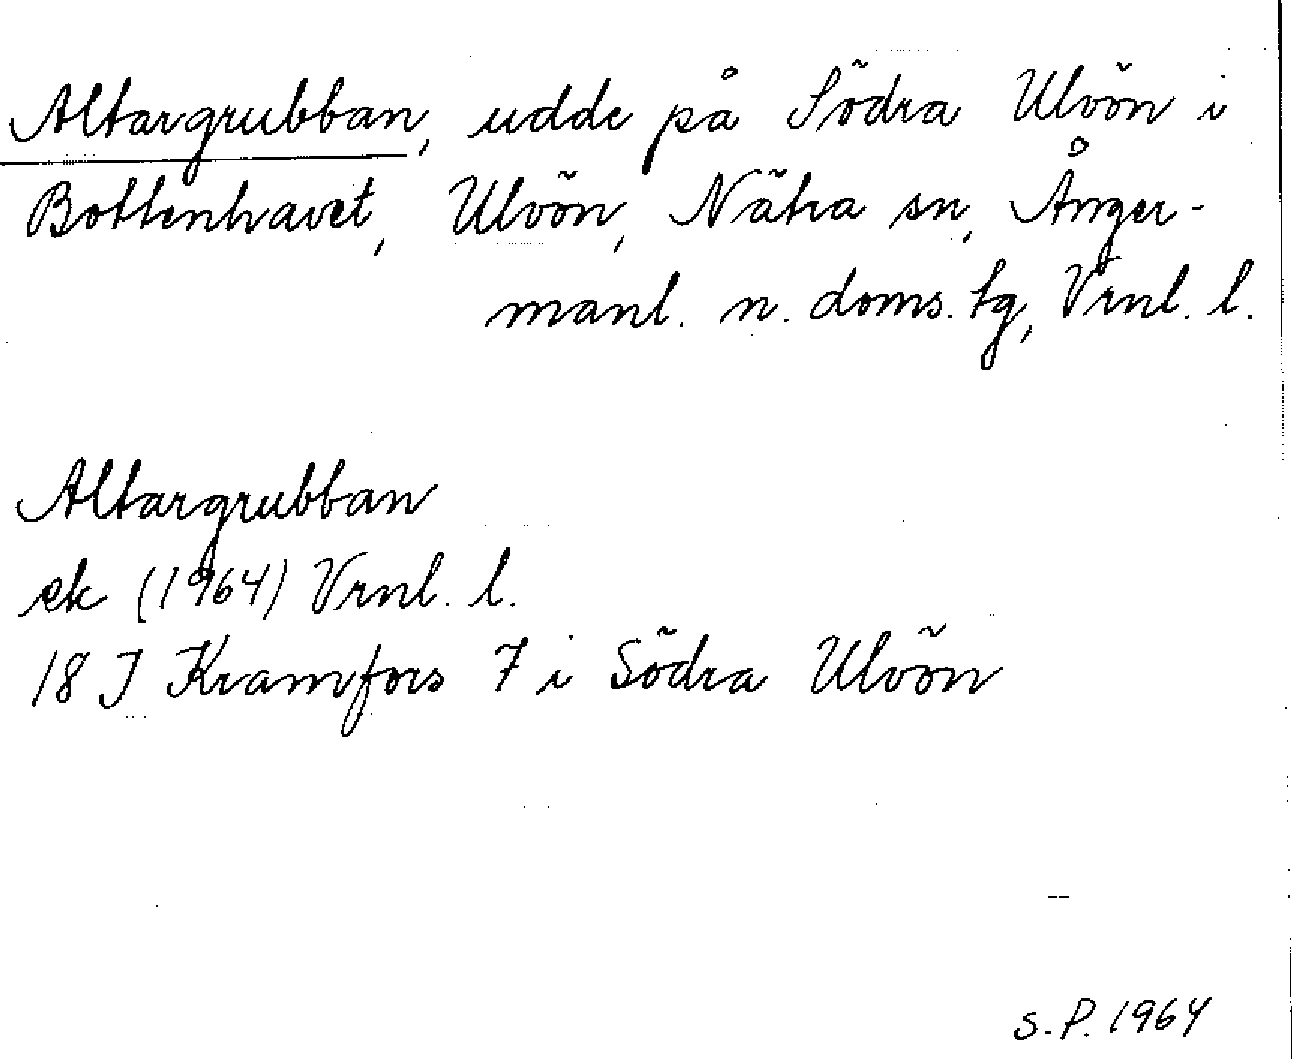 Altargrubban, udde på Södra Ulvön i
Bottenhavet, Ulvön, Nätra sn, Ånger-
manl. n. doms. tg, Vrnl. l.
Altargrubban
ek (1964) Vrnl. l.
18 J Kramfors 7 i Södra Ulvön
S. P. 1964